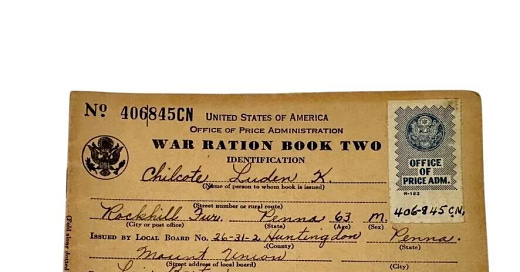 Nº 406845CN UNITED STATES OF AMERICA
OFFICE OF PRICE ADMINISTRATION
WAR RATION BOOK TWO
IDENTIFICATION
OFFICE
OF
PRICE ADM.
R-123
406-845 CN,
Chilcote, Luden K
(Name of person to whom book is issued)
(Street number or rural route)
Rockhill Fur. Penna 63 M.
(City or post office) (State) (Age) (Sex)
ISSUED BY LOCAL BOARD NO. 26-31-2 Huntingdon Penna.
(County) (State)
Mount Union
(Street address of local board) (City)